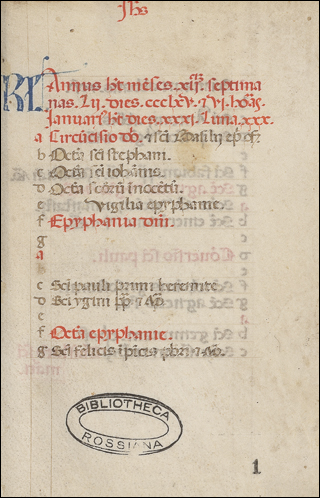 Jhs
KL Annus ht mēses .xij. septima
nas. Lij. dies. ccclxv. ⁊ vj. hoās.
Januari' ht dies. xxxj. Luna. xxx.
a Circūcisio dō. ⁊ sci Basilii ep̄ cf.
b Octā sci stephani.
c Octā sci iohānis.
d Octā scōrū inocētū.
e Vigilia epyphanie.
f Epyphania dnī.
g
a
b
c Sci pauli primi heremite
d Sci ygini pp ⁊ m̄.
e
f Octā epyphanie.
g Sci felicis ī pīcis pbrī ⁊ m̄.
BIBLIOTHECA
ROSSIANA
1